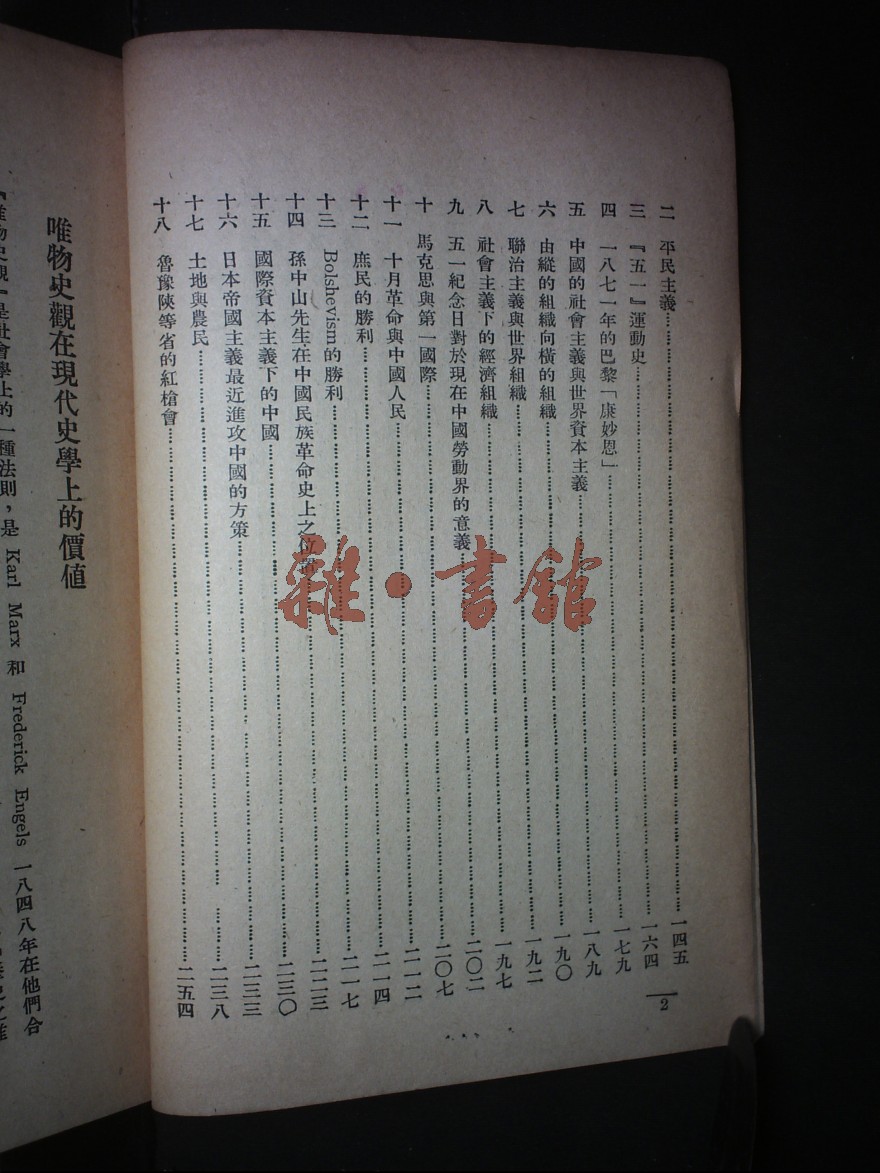 二　平民主義……一四五
三　『五一』運動史……一六四
四　一八七一年的巴黎「康妙恩」……一七九
五　中國的社會主義與世界資本主義……一八九
六　由縱的組織向橫的組織……一九〇
七　聯治主義與世界組織……一九二
八　社會主義下的經濟組織……一九七
九　五一紀念日對於現在中國勞動界的意義……二〇二
十　馬克思與第一國際……二〇七
十一　十月革命與中國人民……二一二
十二　庶民的勝利……二一四
十三　Bolshevism的勝利……二一七
十四　孫中山先生在中國民族革命史上之位置……二二三
十五　國際資本主義下的中國……二三〇
十六　日本帝國主義最近進攻中國的方策……二三三
十七　土地與農民……二三八
十八　魯豫陝等省的紅槍會……二五四
2
雜·書館
唯物史觀在現代史學上的價値
『唯物史觀』是社會學上的一種法則，是 Karl Marx 和 Frederick Engels 一八四八年在他們合